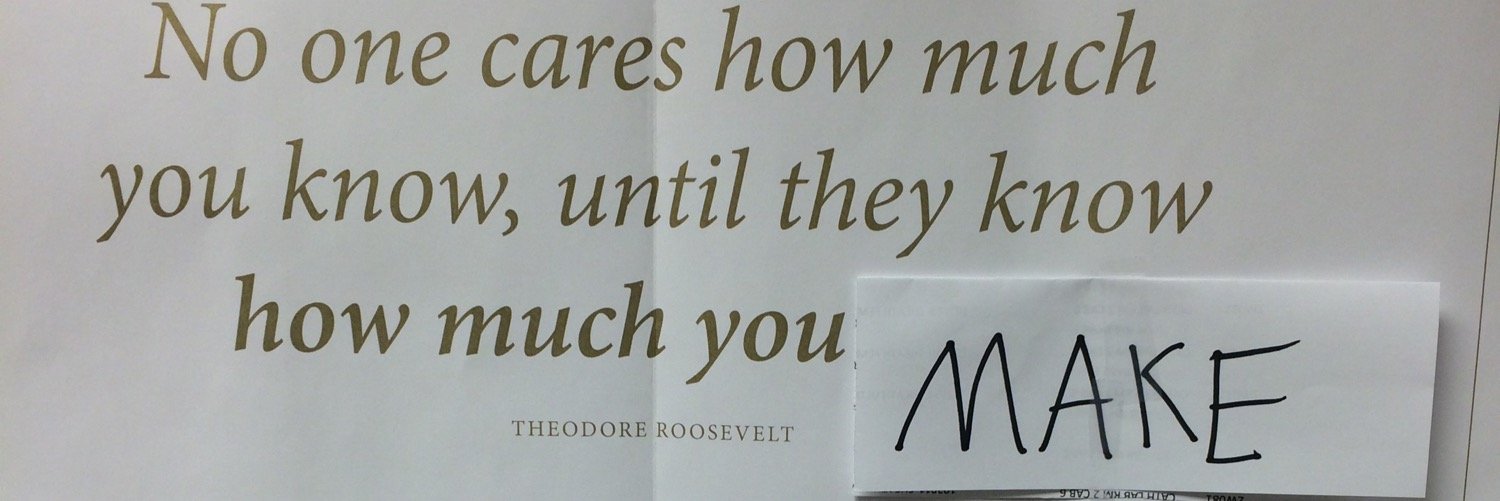 No one cares how much
you know, until they know
how much you MAKE
THEODORE ROOSEVELT